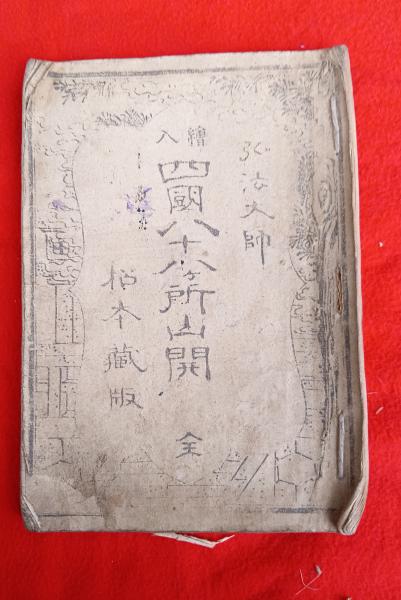 弘法大師
繪入
四國八十八ケ所山開
全
栢本藏版